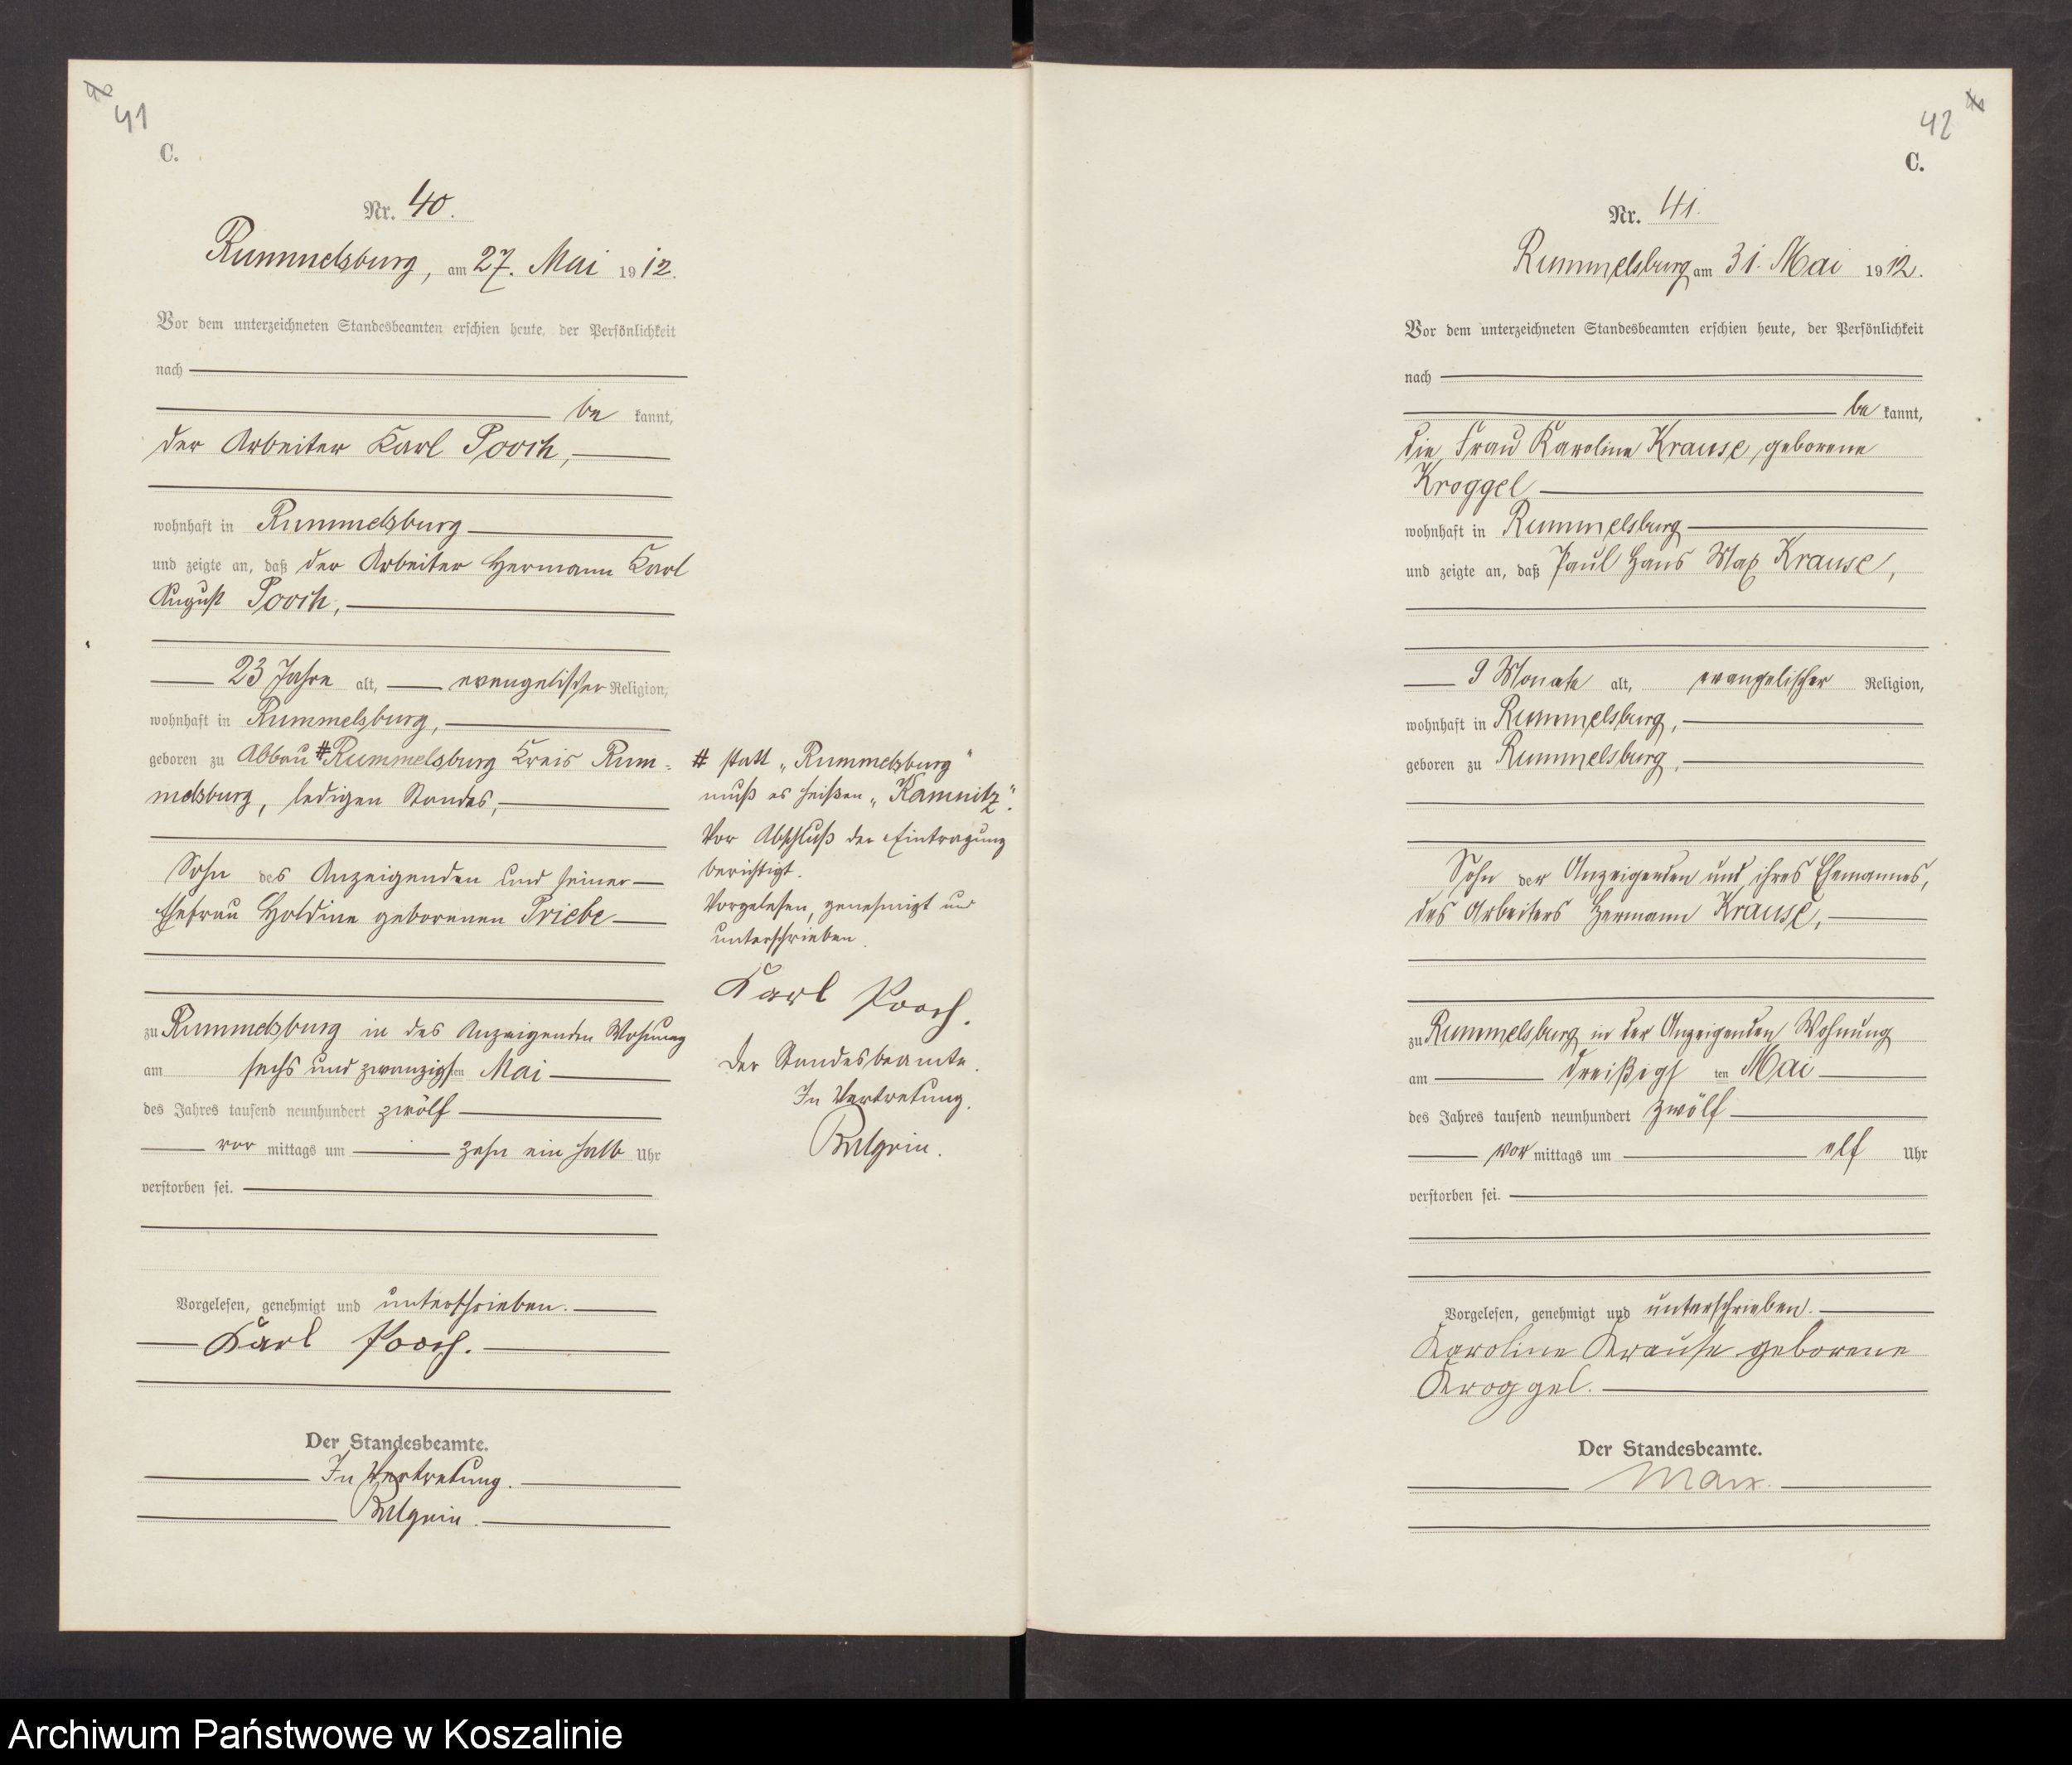 41
C.
Nr. 40.
Rummelsburg, am 27. Mai 1912.
Vor dem unterzeichneten Standesbeamten erschien heute, der Persönlichkeit
nach
be kannt,
der Arbeiter Karl Pooch,
wohnhaft in Rummelsburg
und zeigte an, daß der Arbeiter Hermann Karl
August Pooch,
23 Jahre alt, evangelischer Religion,
wohnhaft in Rummelsburg,
geboren zu Abbau # Rummelsburg Kreis Rum-
melsburg, ledigen Standes,
Sohn des Anzeigenden und seiner
Ehefrau Holdine geborenen Priebe
zu Rummelsburg in des Anzeigenden Wohnung
am sechs und zwanzigsten Mai
des Jahres tausend neunhundert zwölf
vor mittags um zehn ein halb Uhr
verstorben sei.
Vorgelesen, genehmigt und unterschrieben.
Karl Pooch.
Der Standesbeamte.
In Vertretung.
# statt „Rummelsburg"
muß es heißen „Kamnitz".
Vor Abschluß der Eintragung
berichtigt.
Vorgelesen, genehmigt und
unterschrieben.
Karl Pooch.
Der Standesbeamte.
In Vertretung.
42
C.
Nr. 41.
Rummelsburg am 31. Mai 1912.
Vor dem unterzeichneten Standesbeamten erschien heute, der Persönlichkeit
nach
be kannt,
die Frau Karoline Krause, geborene
Kroggel
wohnhaft in Rummelsburg
und zeigte an, daß Paul Hans Max Krause,
9 Monate alt, evangelischer Religion,
wohnhaft in Rummelsburg,
geboren zu Rummelsburg,
Sohn der Anzeigenden und ihres Ehemannes,
des Arbeiters Hermann Krause,
zu Rummelsburg in der Anzeigenden Wohnung
am dreißigsten Mai
des Jahres tausend neunhundert zwölf
vor mittags um elf Uhr
verstorben sei.
Vorgelesen, genehmigt und unterschrieben.
Karoline Krause geborene
Kroggel.
Der Standesbeamte.
Marx.
Archiwum Państwowe w Koszalinie